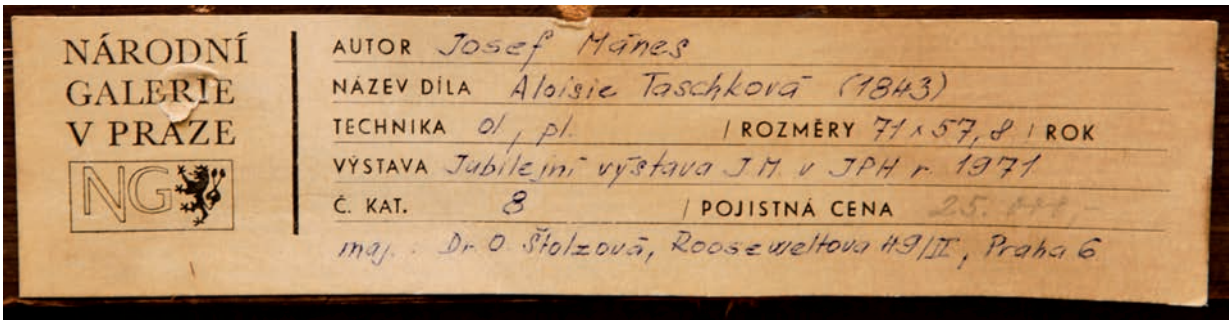 NÁRODNÍ
GALERIE
V PRAZE
NG
AUTOR Josef Mánes
NÁZEV DÍLA Aloisie Taschková (1843)
TECHNIKA ol, pl. / ROZMĚRY 71 x 57,8 / ROK
VÝSTAVA Jubilejní výstava J.M. v JPH r. 1971
Č. KAT. 8 / POJISTNÁ CENA 25.000,-
maj.: Dr. O. Štolzová, Rooseweltova 49/II, Praha 6